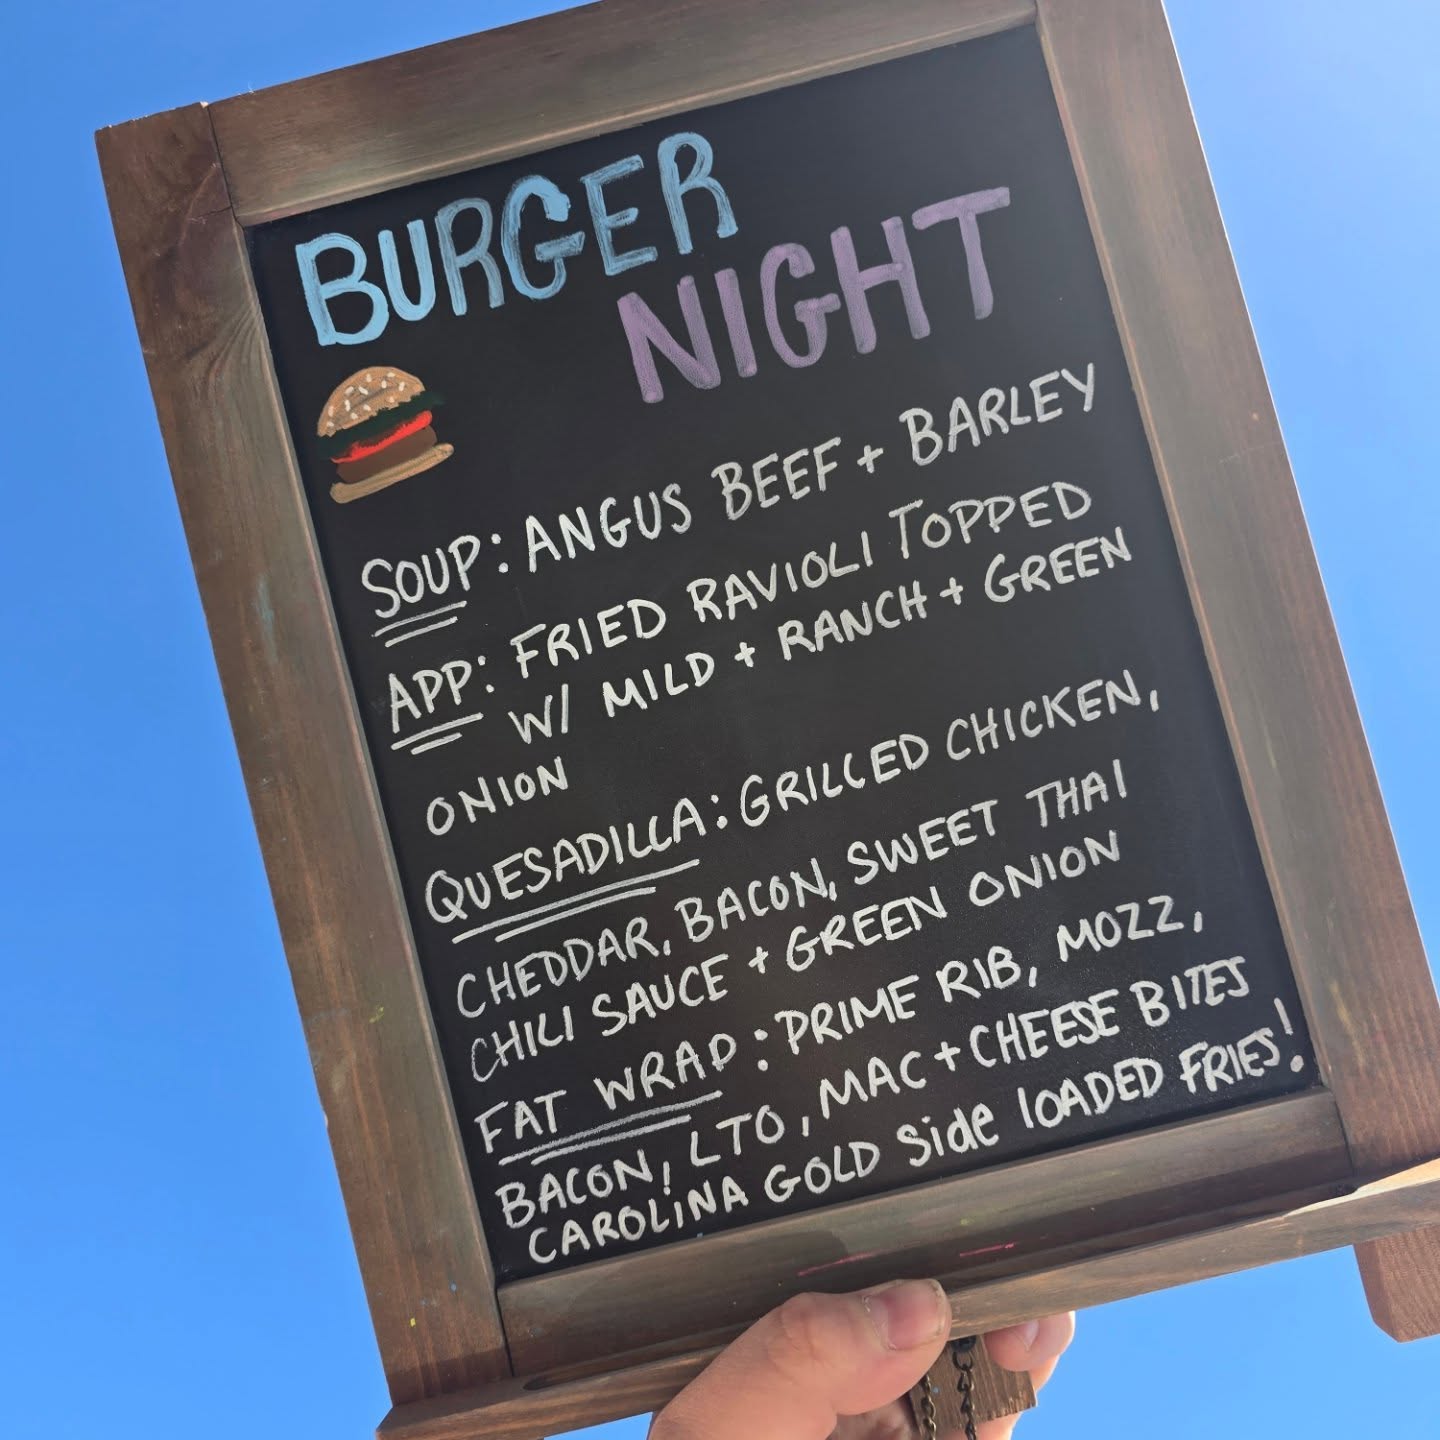 BURGER
NIGHT
SOUP: ANGUS BEEF + BARLEY
APP: FRIED RAVIOLI TOPPED
W/ MILD + RANCH + GREEN
ONION
QUESADILLA: GRILLED CHICKEN,
CHEDDAR, BACON, SWEET THAI
CHILI SAUCE + GREEN ONION
FAT WRAP: PRIME RIB, MOZZ,
BACON, LTO, MAC + CHEESE BITES
CAROLINA GOLD Side LOADED FRIES!